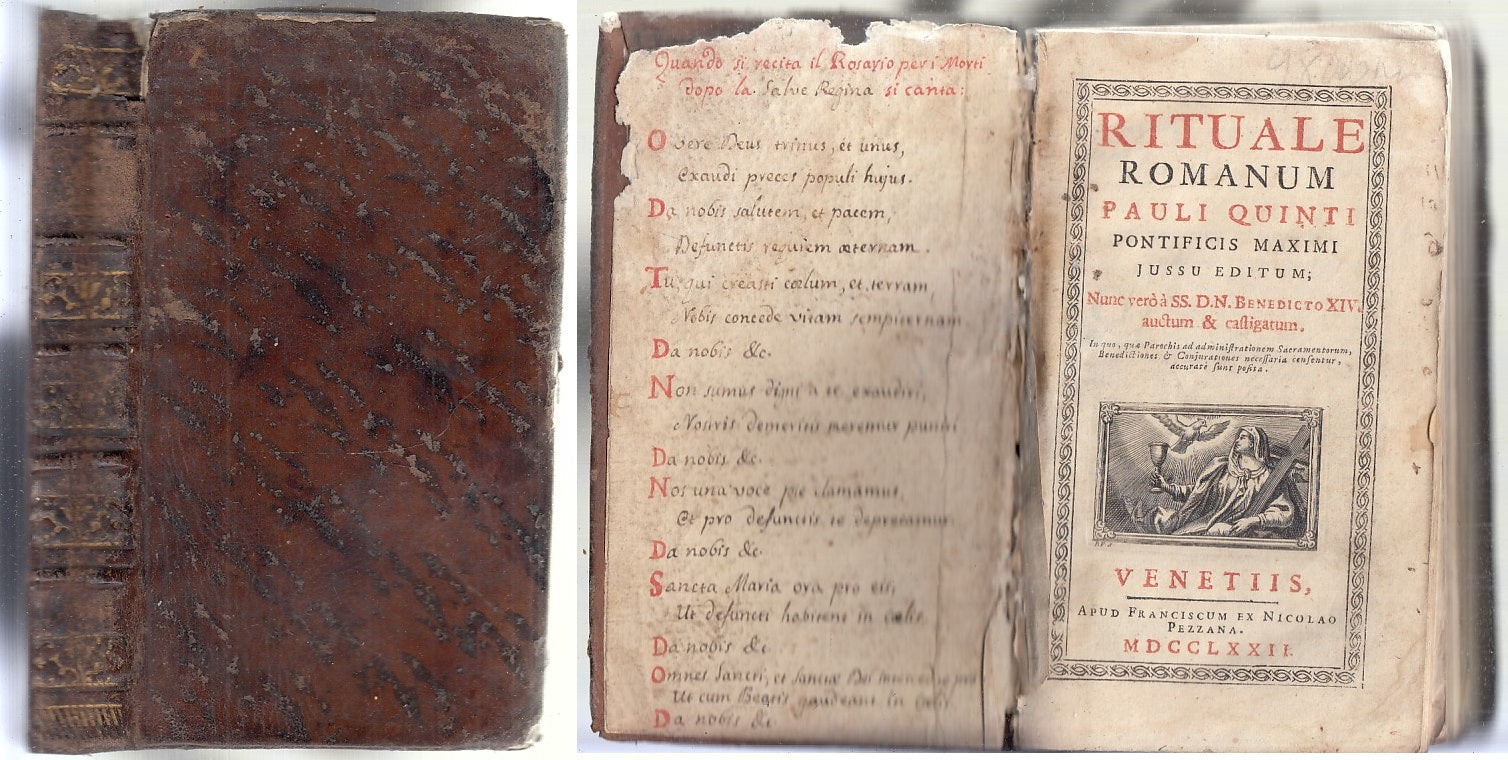 Quando si recita il Rosario per i Morti
dopo la Salve Regina si canta:
O vere Deus trinus, et unus,
Exaudi preces populi hujus.
Da nobis salutem, et pacem,
Defunctis requiem æternam.
Tu qui creasti cœlum, et terram,
Nobis concede vitam sempiternam
Da nobis &c.
Non sumus digni à te exaudiri,
Nostris demeritis meremur puniri
Da nobis &c.
Nos una voce pie clamamus
Et pro defunctis te deprecamur
Da nobis &c.
Sancta Maria ora pro eis,
Ut defuncti habitent in cœlis
Da nobis &c.
Omnes Sancti, et Sanctæ Dei
Ut cum Beatis gaudeant in cœlis
Da nobis &c.
RITUALE
ROMANUM
PAULI QUINTI
PONTIFICIS MAXIMI
JUSSU EDITUM;
Nunc verò à SS. D.N. BENEDICTO XIV.
auctum & castigatum.
In quo, quæ Parochis ad administrationem Sacramentorum,
Benedictiones & Conjurationes necessaria censentur,
accuratè sunt posita.
VENETIIS,
APUD FRANCISCUM EX NICOLAO
PEZZANA.
MDCCLXXII.